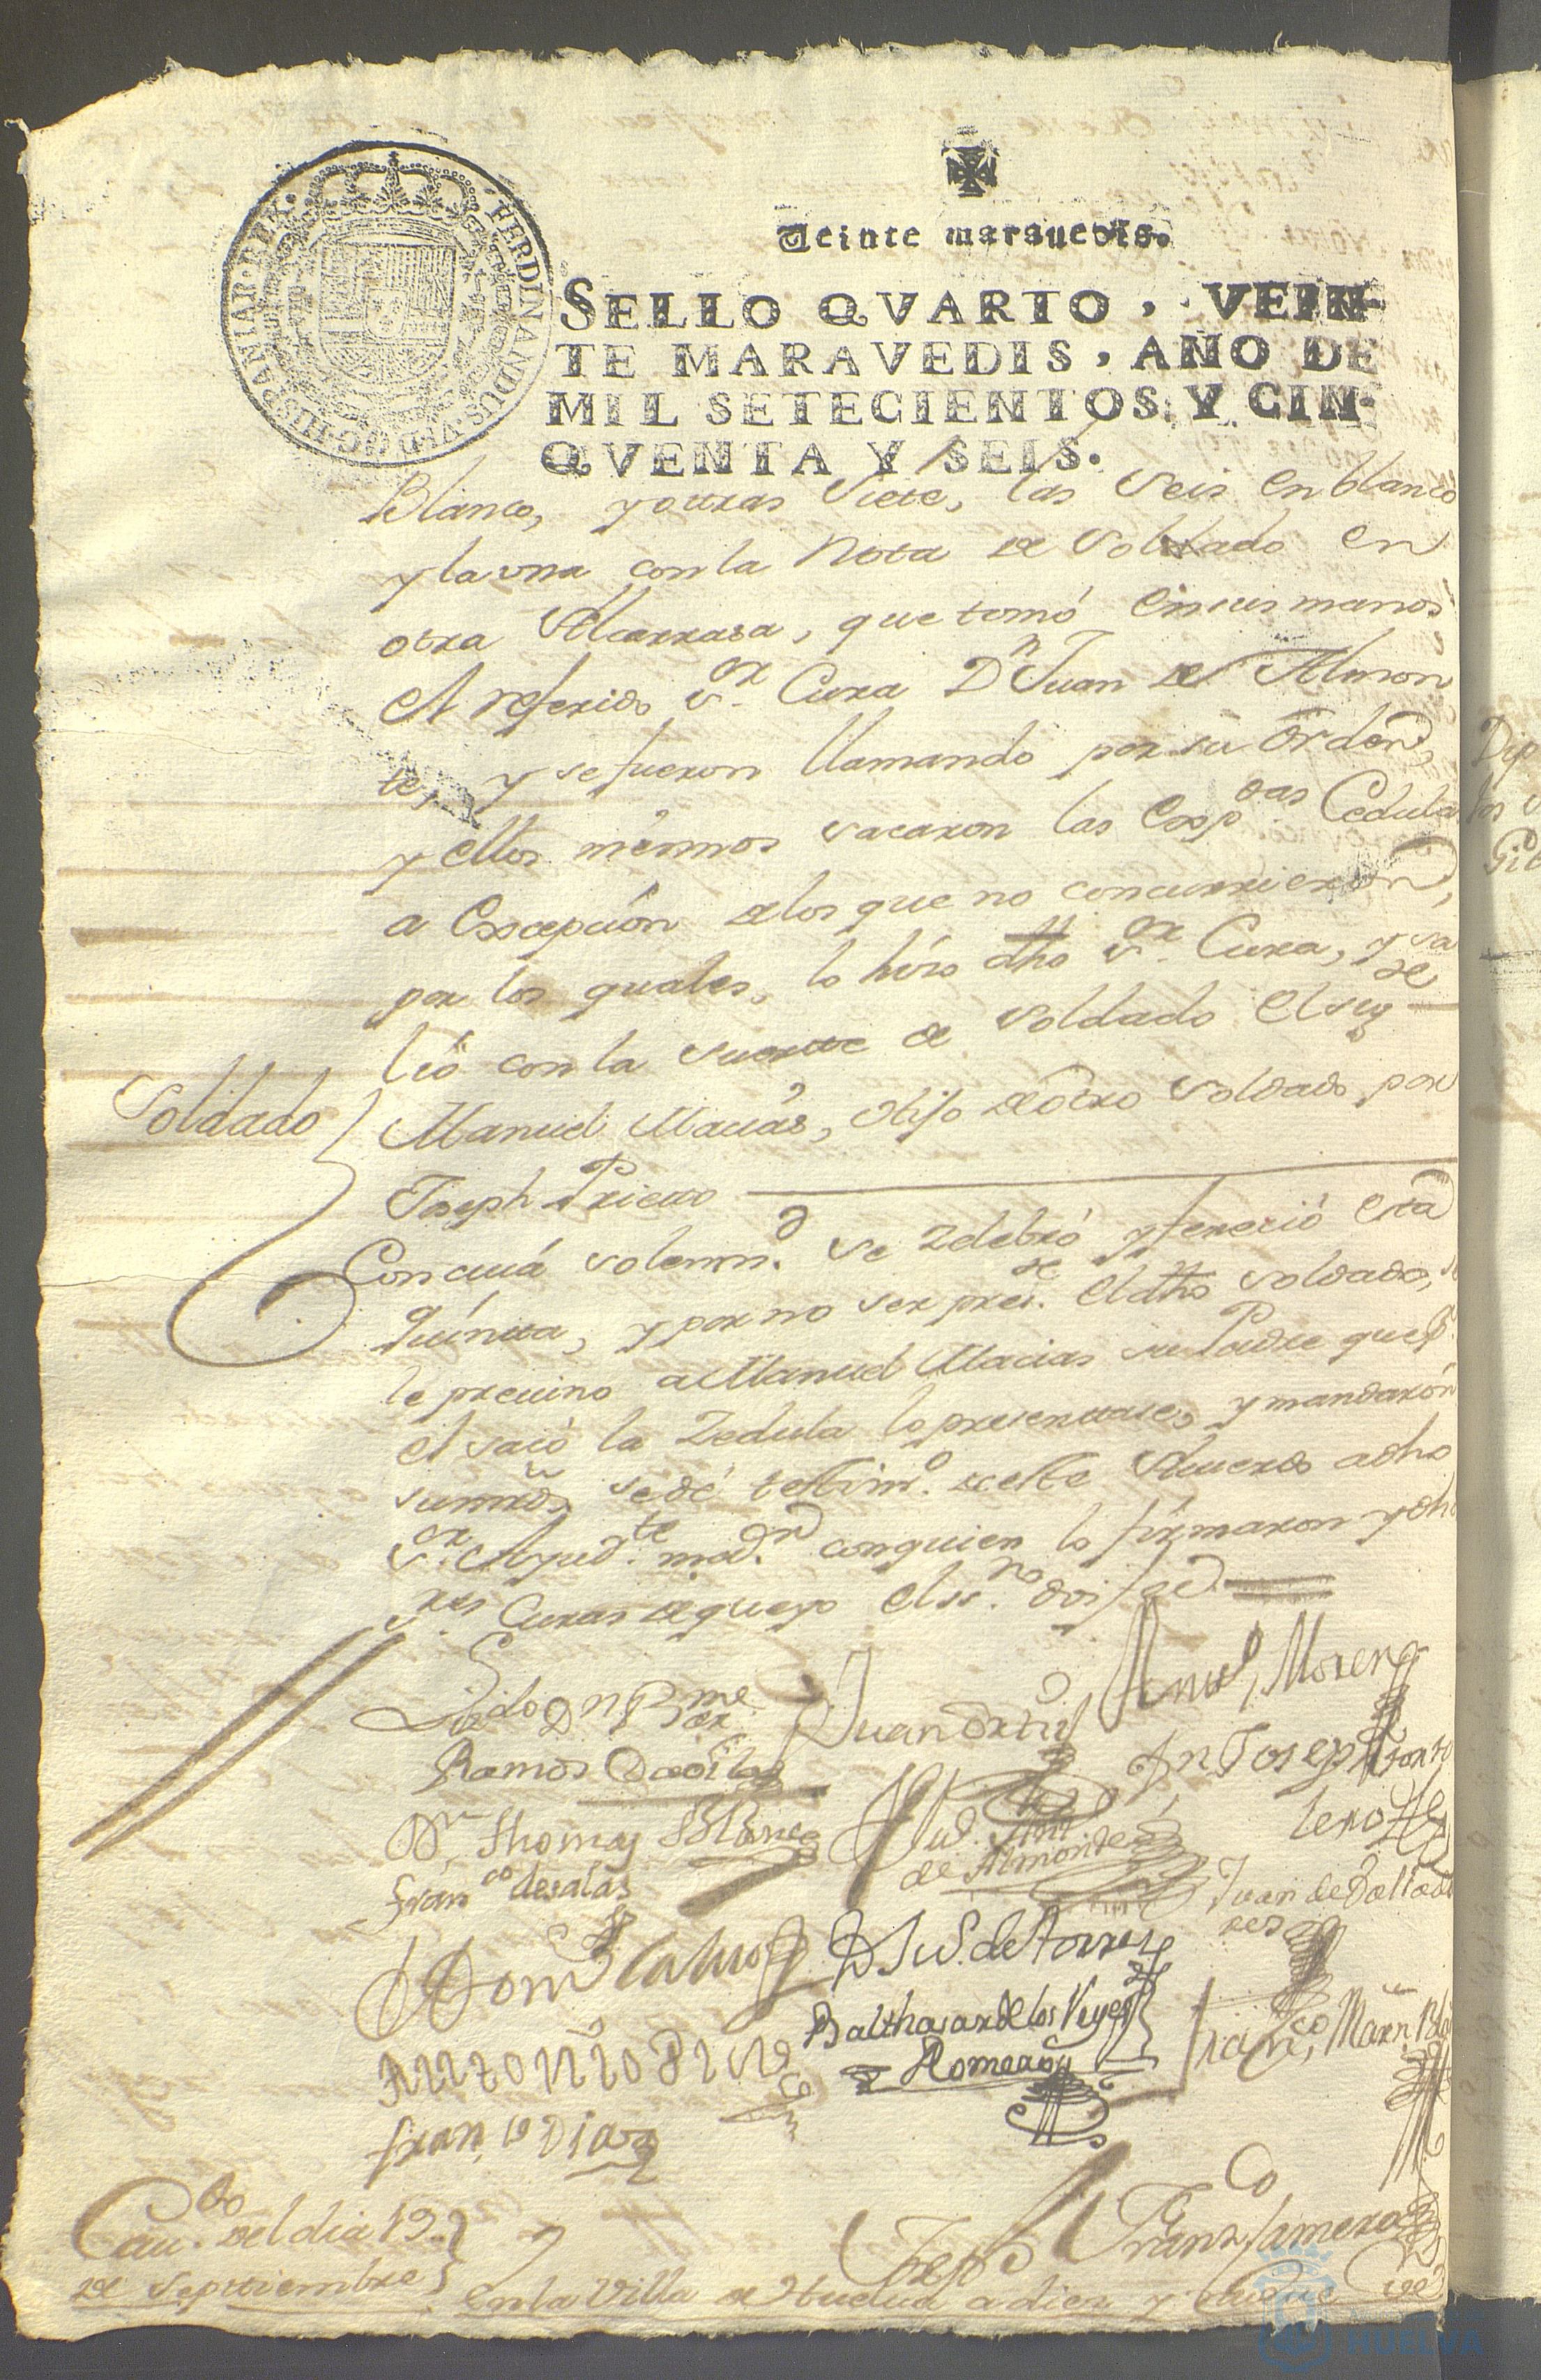 FERDINANDUS.VI.D.G.HISPANIAR.REX.
Veinte maravedis.
SELLO QVARTO, VEIN-
TE MARAVEDIS, AÑO DE
MIL SETECIENTOS Y CIN-
QVENTA Y SEIS.
Blanco, y otras Siete, las Seis en blanco
y la vna con la Nota de Soldado en
otra Alcarrasa, que tomó en sus manos
el referido Sor. Cura Dn Juan de Almon
te, y se fueron llamando por su orden,
y ellos mismos sacaron las exspdas Cedulas
a excepción de los que no concurrieron,
por los quales, lo hizo dho Sor. Cura, y sa
lió con la suerte de Soldado el sigte
Soldado
Manuel Macías, hijo de otro Soldado por
Joseph Prieto
Con cuiá solemnd. se Zelebró y feneció esta
quinta, y por no ser presте. el dho Soldado, se
le preuino a Manuel Macias su Padre que pr.
el sacó la Zedula lo presentase, y mandarón
sus mrds, se dé testimo. de este Acuerdo a dho
Sor. Ayudte. mor. con quien lo firmaron y dhos
Sres Curas de que yo el ssno. doi fee
Lizdo Dn Bme
Ramos Davila
Juan Ortiz
Anul Moreno
Dn Thomas Blanco
Dn Joseph
lero
de Almonte
Franco de Salas
Juan de Vallada
res
Domo Calvo
D Ju S. de Torres
Balthasar de los Reyes
Romero
Franco, Marn Bla
Antonio Dias
Franco Diaz
Franco Jamero
Cauo. del dia 19
de Septtiembre
En la Villa de Huelua a diez y nueue de
HUELVA